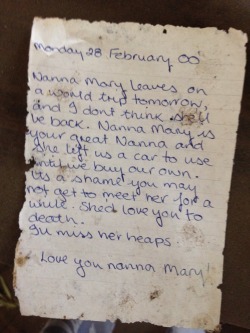 Monday 28 February 00'
Nanna Mary leaves on
a world trip tomorrow,
and I dont think she'll
be back. Nanna Mary is
your great Nanna and
she left us a car to use
until we buy our own.
Its a shame you may
not get to meet her for a
while. She'd love you to
death.
I'll miss her heaps.
Love you nanna Mary!